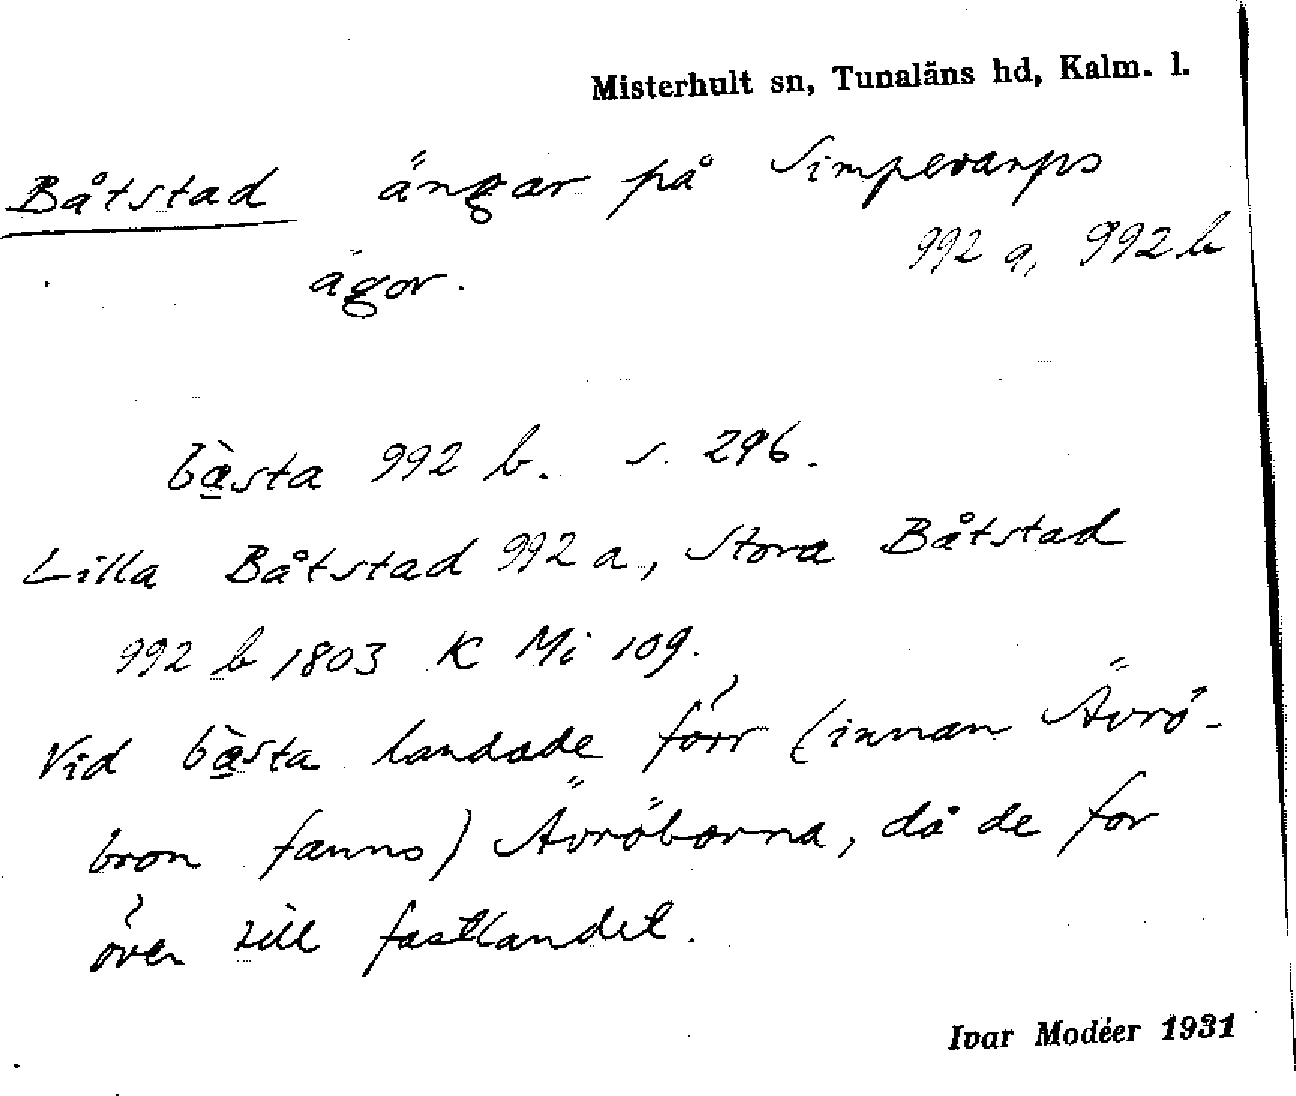 Misterhult sn, Tunaläns hd, Kalm. l.
Båtstad ängar på Simpevarps
ägor. 992 a, 992 b
bà̱sta 992 b. s. 296.
Lilla Båtstad 992 a, Stora Båtstad
992 b 1803 K Mi 109.
Vid bà̱sta landade förr (innan Ävrö-
bron fanns) Ävröborna, då de for
över till fastlandet.
Ivar Modéer 1931